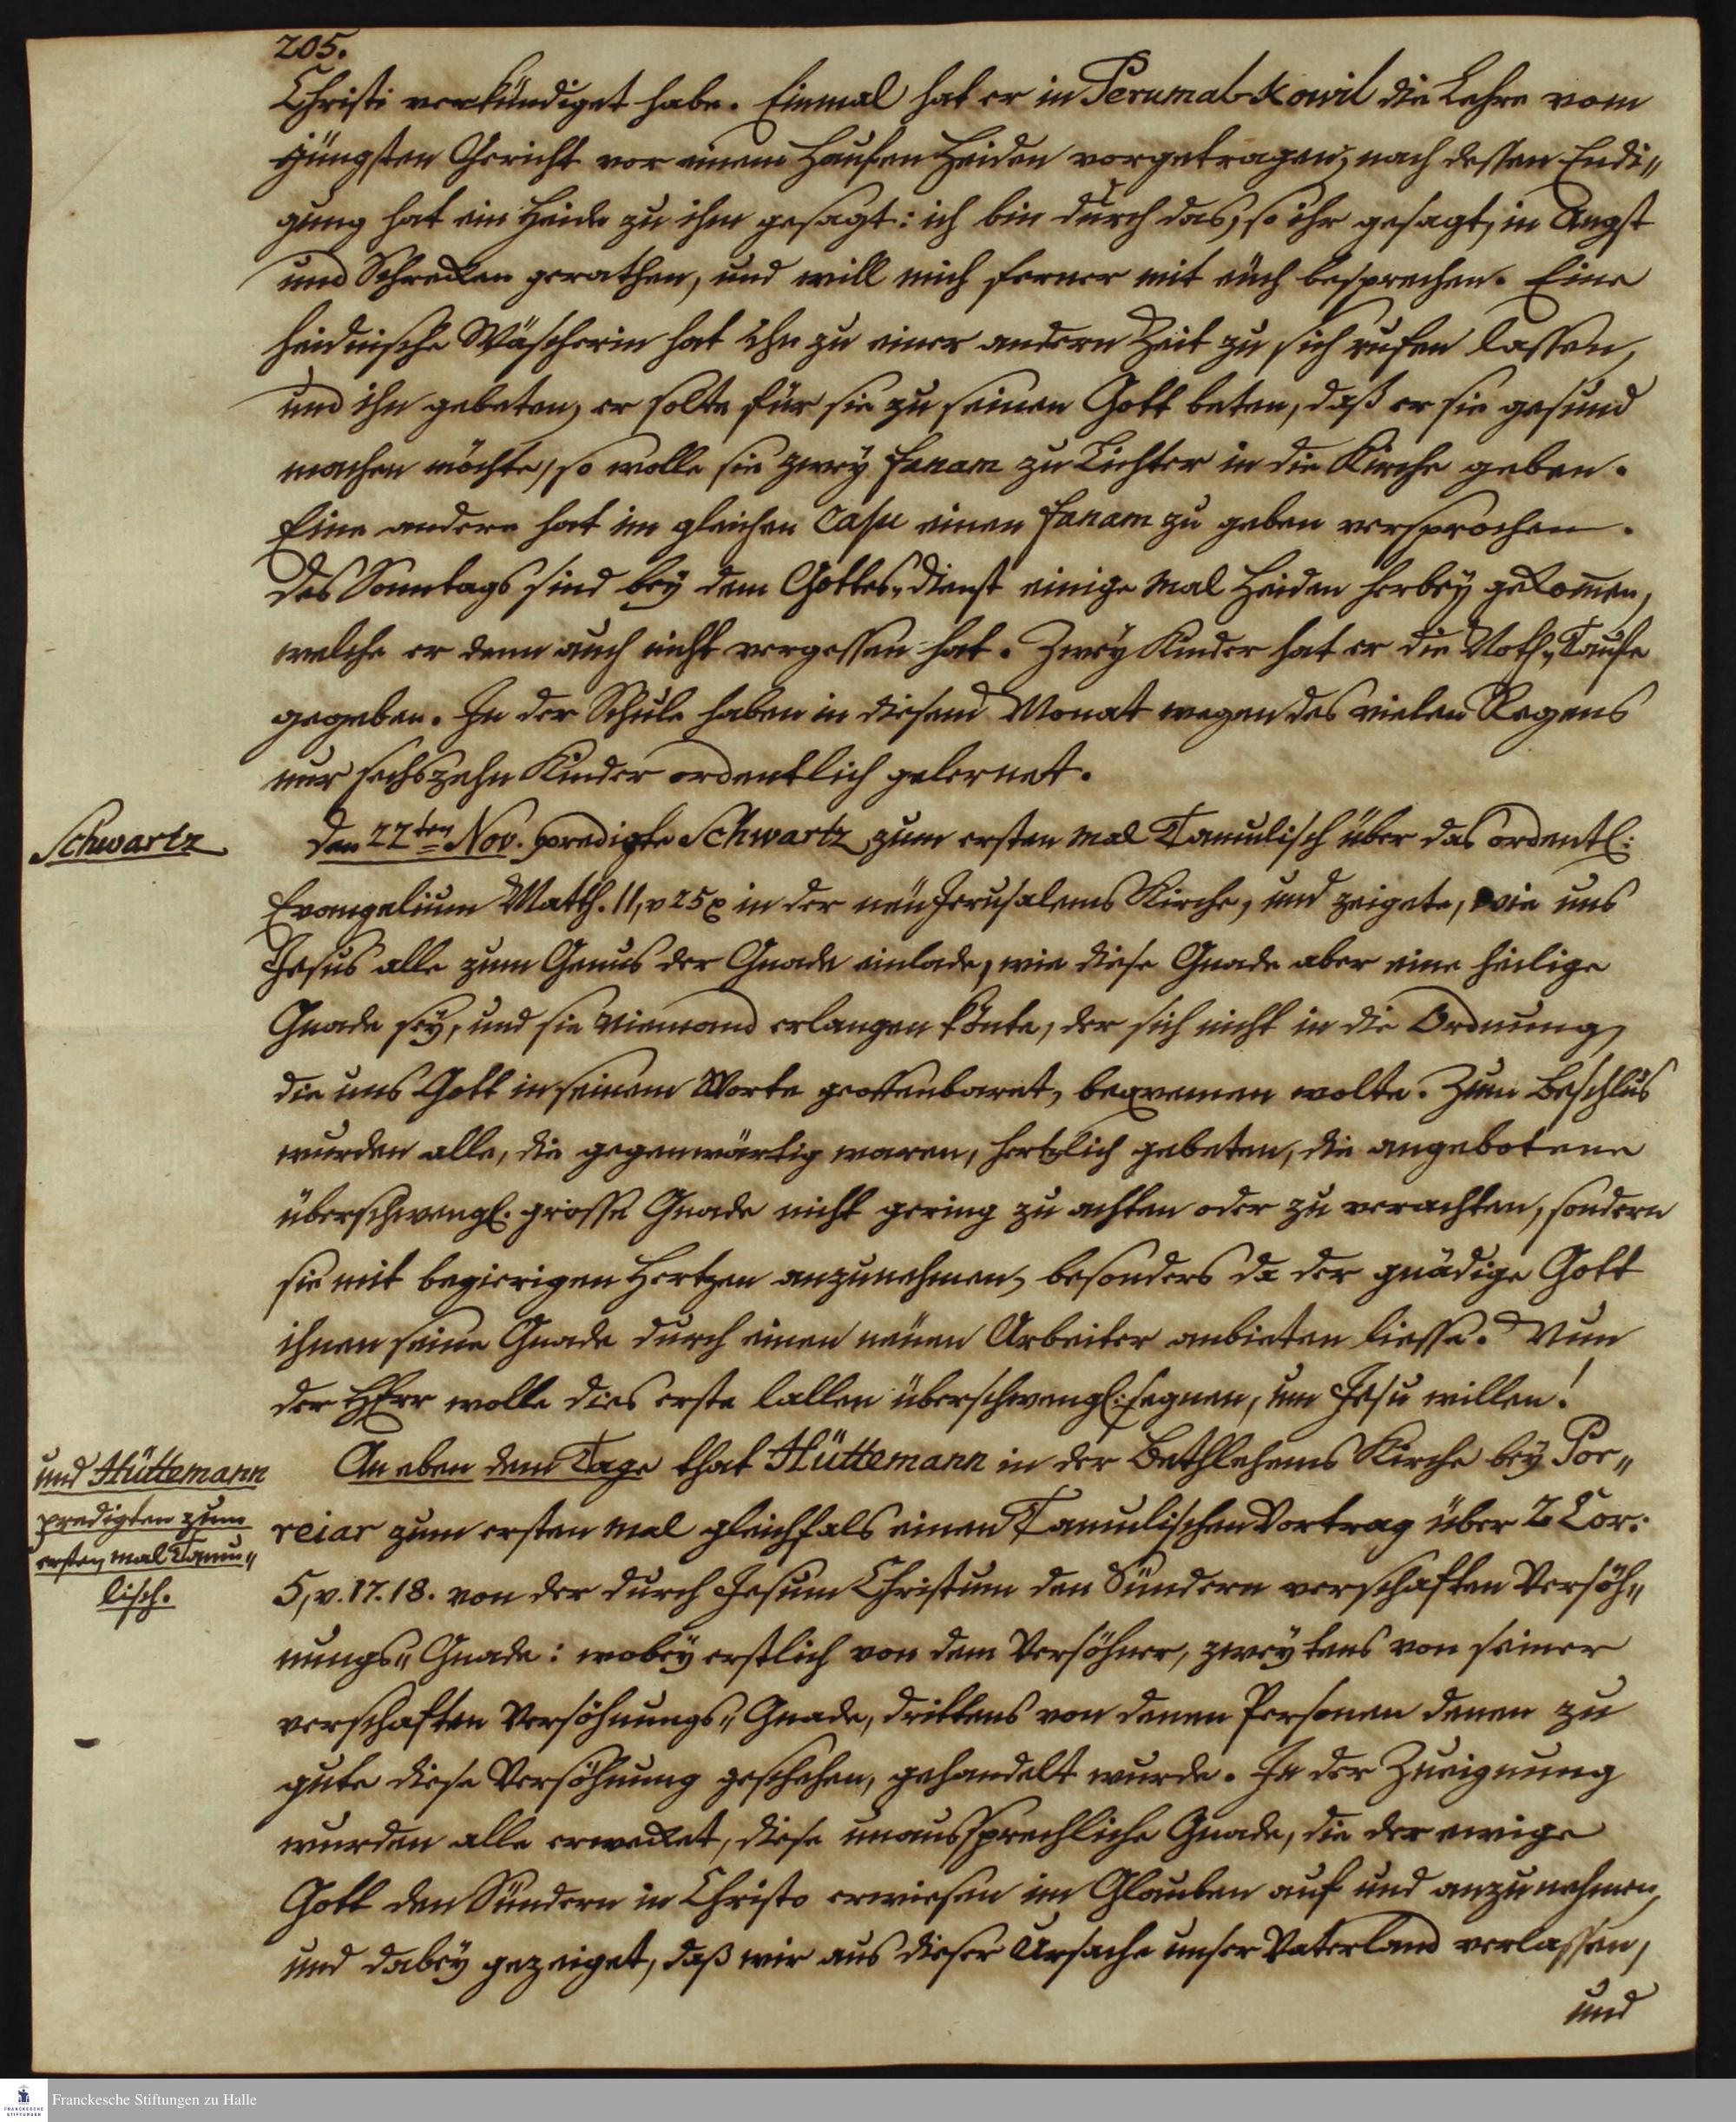 205.
Christi verkündiget habe. Einmal hat er in Perumal-Kowil die Lehre vom
jüngsten Gericht vor einem Haufen Heiden vorgetragen, nach dessen Endi„
gung hat ein Heide zu ihm gesagt: ich bin durch das, so ihr gesagt, in Angst
und Schrecken gerathen, und will mich ferner mit euch besprechen. Eine
heidnische Wäscherin hat Ihn zu einer andern Zeit zu sich rufen lassen,
und ihn gebeten, er solte für sie zu seinen Gott beten, daß er sie gesund
machen möchte, so wolle sie zwey fanam zu Lichter in die Kirche geben.
Eine andere hat im gleichen Casu einen fanam zu geben versprochen.
Des Sonntags sind bey dem Gottes„dienst einige mal Heiden herbey gekom̅en,
welche er denn auch nicht vergessen hat. Zwey Kinder hat er die Noth„Taufe
gegeben. In der Schule haben in diesem Monat wegen des vielen Regens
nur sechszehn Kinder ordentlich gelernet.
Schwartz
Den 22ten Nov. predigte Schwartz zum ersten mal Tamulisch über das ordentl:
Evangelium Matth. 11, v 25 in der neu Jerusalems Kirche, und zeigete, wie uns
Jesus alle zum Genus der Gnade einlade, wie diese Gnade aber eine heilige
Gnade sey, und sie niemand erlangen könte, der sich nicht in die Ordnung,
die uns Gott in seinem Worte geoffenbaret, beqvemen wolte. Zum Beschlus
wurden alle, die gegenwärtig waren, hertzlich gebeten, die angebotene
überschwengl. grosse Gnade nicht gering zu achten oder zu verachten, sondern
sie mit begierigen Hertzen anzunehmen, besonders da der gnädige Gott
ihnen seine Gnade durch einen neuen Arbeiter anbieten liesse. Nun
der HErr wolle dies erste lallen überschwengl: segnen, um Jesu willen!
und Hüttemann
predigten zum
ersten mal Tamu„
lisch.
An eben dem Tage that Hüttemann in der Bethlehems Kirche bey Por„
reiar zum ersten mal gleichfals einen Tamulischen Vortrag über 2 Cor:
5, v. 17. 18. von der durch Jesum Christum den Sündern verschaften Versöh„
nungs„Gnade: wobey erstlich von dem Versöhner, zweytens von seiner
verschaften Versöhnungs„Gnade, drittens von denen Personen denen zu
gute diese Versöhnung geschehen, gehandelt wurde. In der Zueignung
wurden alle erwecket, diese unaussprechliche Gnade, die der ewige
Gott den Sündern in Christo erwiesen im Glauben auf und anzunehmen,
und dabey gezeiget, daß wir aus dieser Ursache unser Vaterland verlassen,
und
Franckesche Stiftungen zu Halle